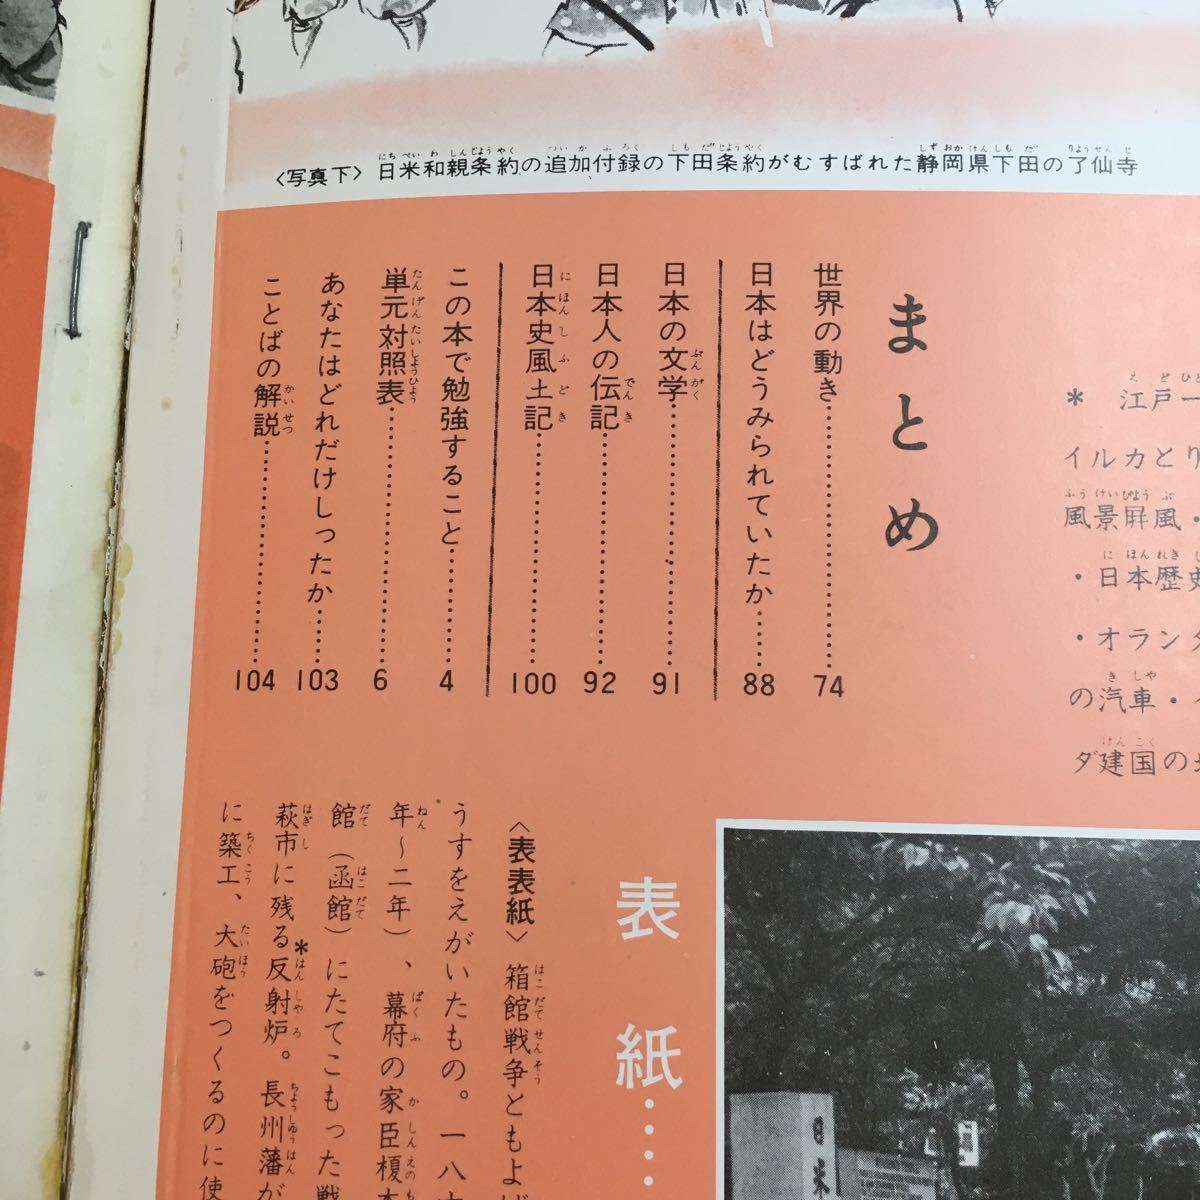 〈写真下〉日米和親条約の追加付録の下田条約がむすばれた静岡県下田の了仙寺
* 江戸一
イルカとり
風景屛風・
・日本歴史
・オランダ
の汽車・
ダ建国の
まとめ
世界の動き……………74
日本はどうみられていたか……88
日本の文学……………91
日本人の伝記……………92
日本史風土記……………100
この本で勉強すること……………4
単元対照表……………6
あなたはどれだけしったか……103
ことばの解説……………104
表紙……
〈表表紙〉箱館戦争ともよば
うすをえがいたもの。一八六
年～二年)、幕府の家臣榎本
館(函館)にたてこもった戦
萩市に残る*反射炉。長州藩が
に築工、大砲をつくるのに使
日米